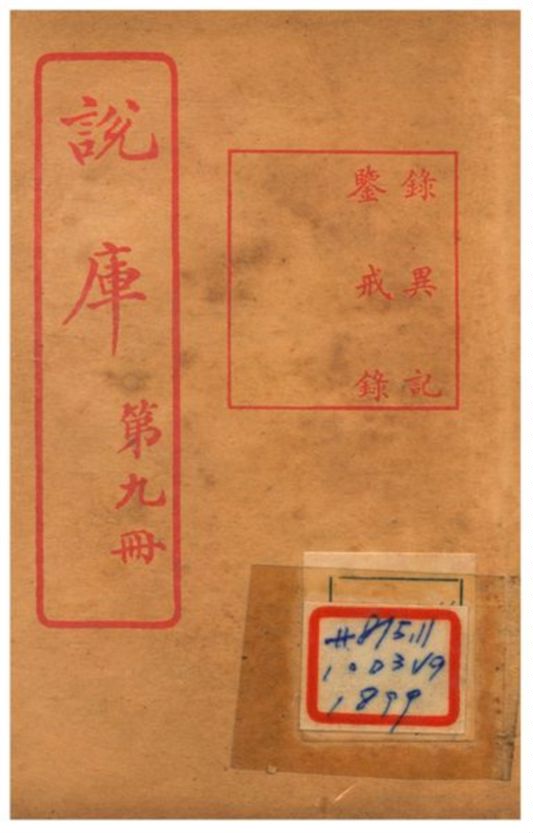 錄異記
鑒戒錄
說庫
第九冊
#895.11
10D3V9
1899